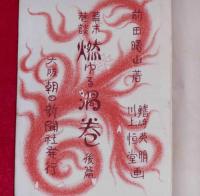 前田曙山著
幕末巷談
燃ゆる渦巻
後篇
鰭崎英朋
川上恒堂画
大阪朝日新聞社発行